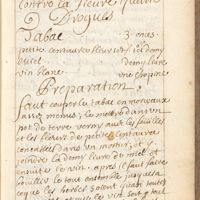 contre la fievre quarte
Drogues
Tabac 3 onces
petite centauree fleurie demy
miel demy livre
vin blanc une chopine
Preparation.
faut couper le tabac en morceaux
assez menus, le mettre dans un
pot de terre verny avec les feuilles
et les fleurs de petite centauree
concassées dans un mortier, et y
joindre la demy livre de miel et
ensuite le vin. apres, il faut faire
bouillir le tout ensemble jusques a
ce que les herbes soient quasi toutes